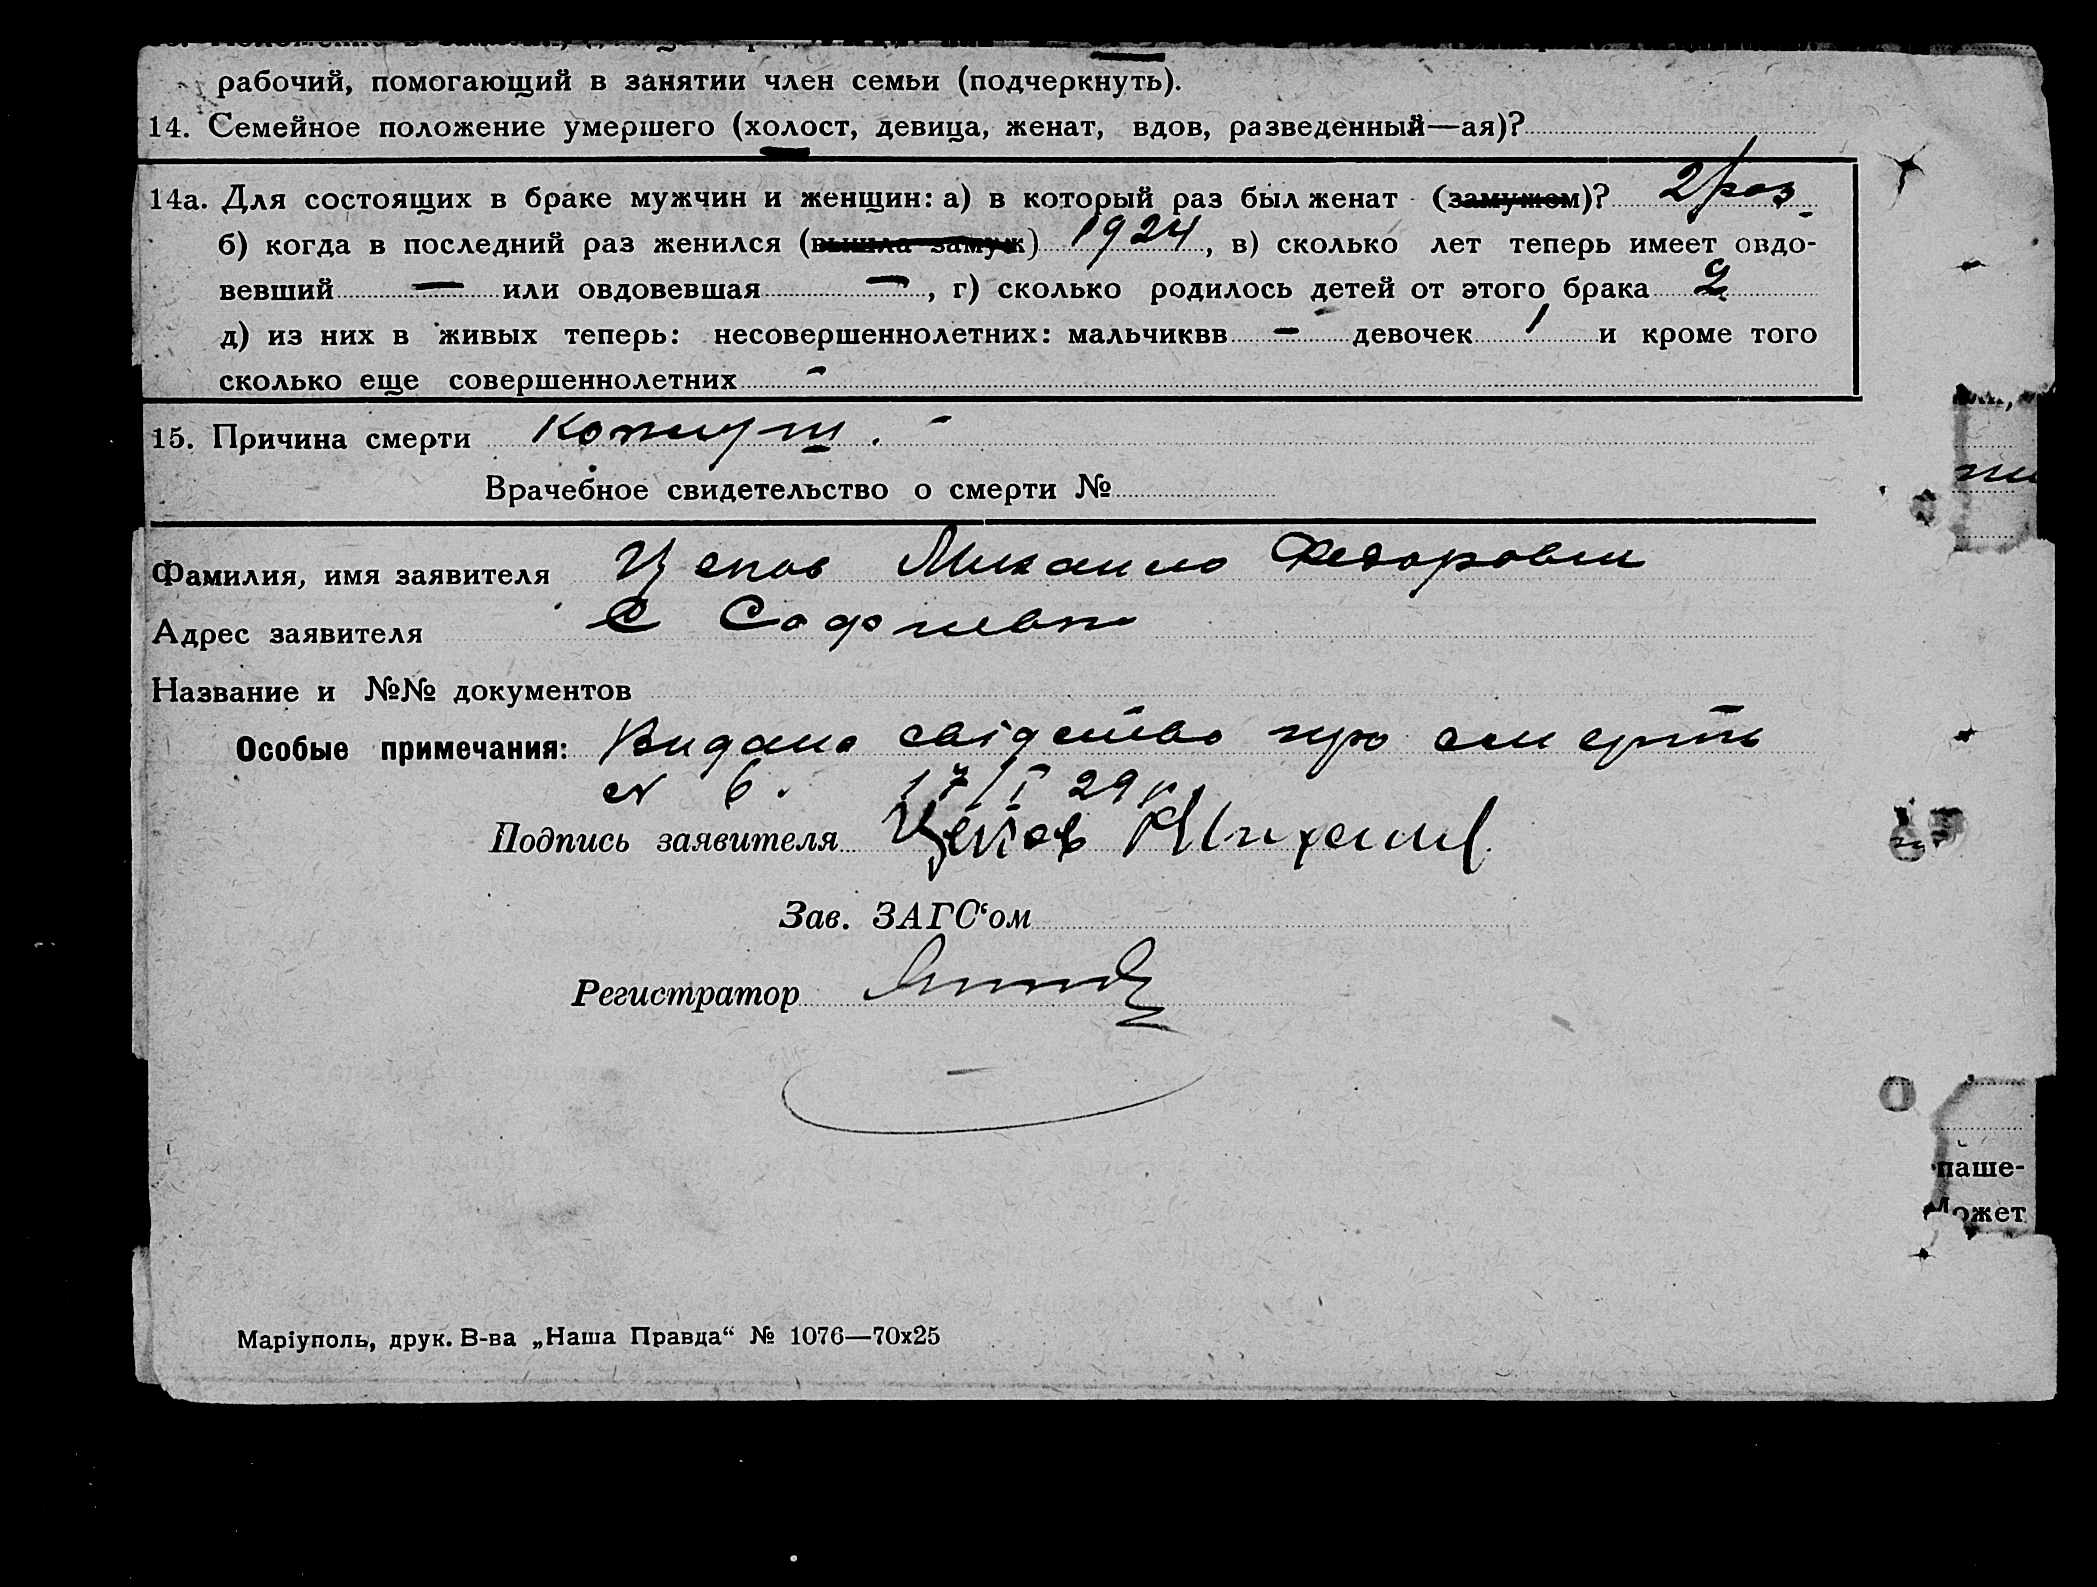 рабочий, помогающий в занятии член семьи (подчеркнуть).
14. Семейное положение умершего (холост, девица, женат, вдов, разведенный—ая)?
14а. Для состоящих в браке мужчин и женщин: а) в который раз был женат (замужем)? 2 раз
б) когда в последний раз женился (вышла замуж) 1924, в) сколько лет теперь имеет овдо-
вевший — или овдовевшая —, г) сколько родилось детей от этого брака 2
д) из них в живых теперь: несовершеннолетних: мальчиквв – девочек 1 и кроме того
сколько еще совершеннолетних -
15. Причина смерти
Врачебное свидетельство о смерти №
Фамилия, имя заявителя Михаило Федорович
Адрес заявителя С Софиевка
Название и №№ документов
Особые примечания: Видано свідоцтво про смерть
№ 6. 17/I 29 р
Подпись заявителя Михаил
Зав. ЗАГС‘ом
Регистратор
паше-
Может
Маріуполь, друк. В-ва „Наша Правда“ № 1076—70х25